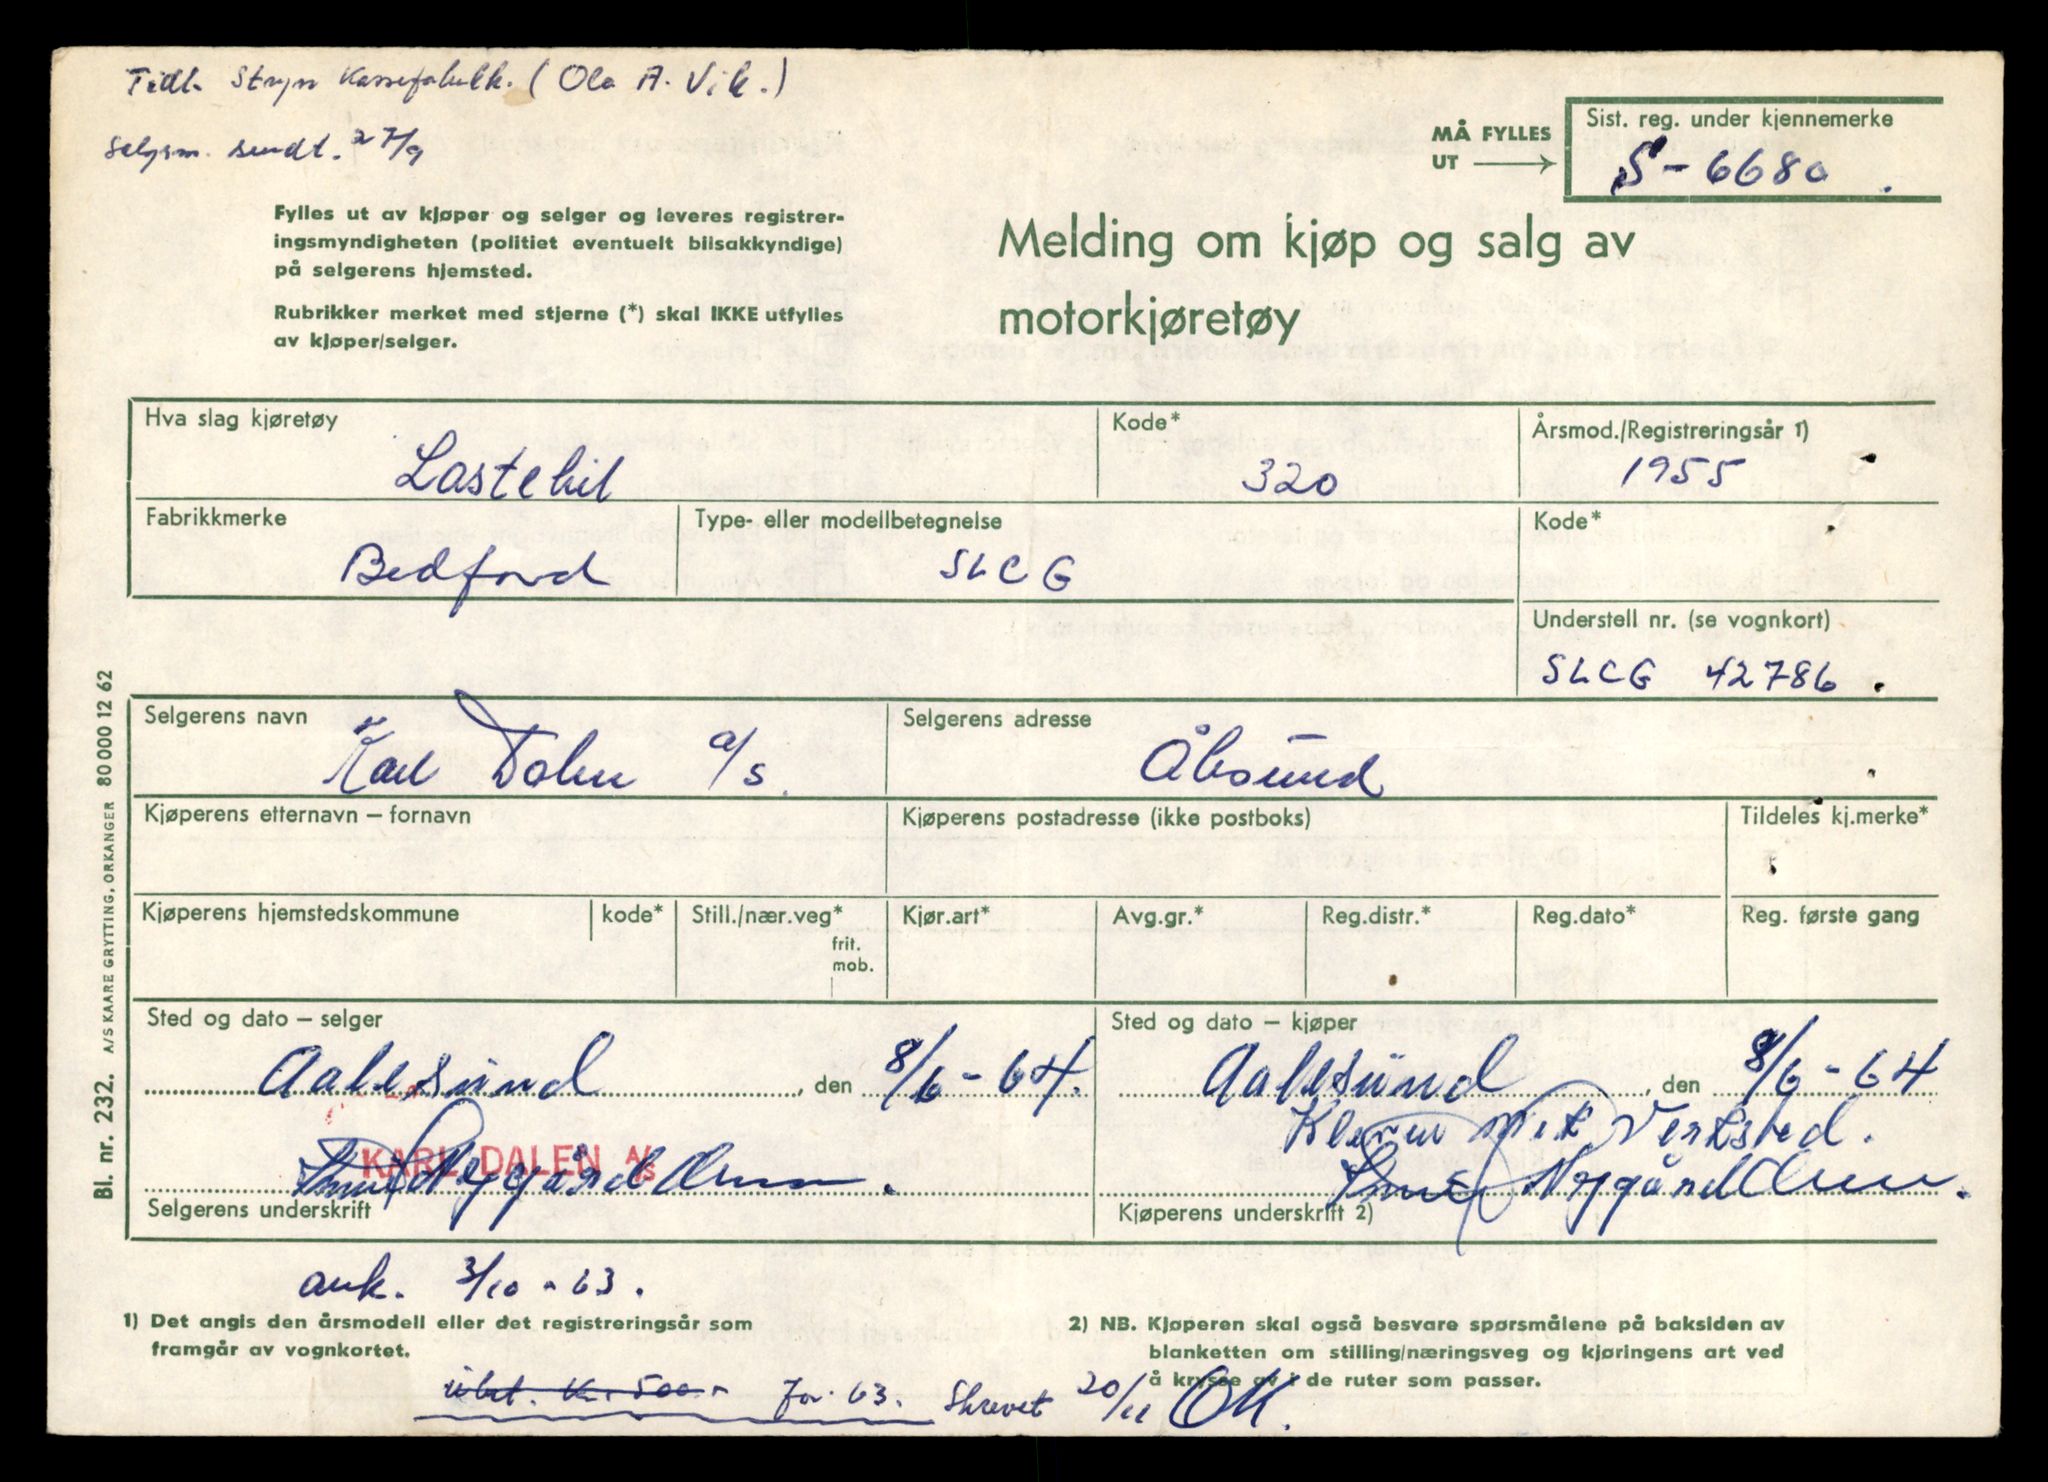 Tidl. Stryn Kassefabrikk. (Ola A. Vik.)
Selgsm. sendt. 27/9
MÅ FYLLES
UT
Sist. reg. under kjennemerke
S-6680.
Fylles ut av kjøper og selger og leveres registrer-
ingsmyndigheten (politiet eventuelt bilsakkyndige)
på selgerens hjemsted.
Rubrikker merket med stjerne (*) skal IKKE utfylles
av kjøper/selger.
Melding om kjøp og salg av
motorkjøretøy
Hva slag kjøretøy
Lastebil
Kode*
320
Årsmod./Registreringsår 1)
1955
Fabrikkmerke
Bedford
Type- eller modellbetegnelse
SLCG
Kode*
Understell nr. (se vognkort)
SLCG 42786.
Selgerens navn
Karl Dalen a/s.
Selgerens adresse
Ålesund
Kjøperens etternavn – fornavn
Kjøperens postadresse (ikke postboks)
Tildeles kj.merke*
Kjøperens hjemstedskommune
kode*
Still./nær.veg*
frit.
mob.
Kjør.art*
Avg.gr.*
Reg.distr.*
Reg.dato*
Reg. første gang
Sted og dato – selger
Aalesund, den 8/6-64.
KARL DALEN A/S
Knut Nygård Olsen.
Selgerens underskrift
Sted og dato – kjøper
Aalesund, den 8/6-64
Kleven Mek Verksted.
Knut Nygård Olsen.
Kjøperens underskrift 2)
ank. 3/10-63.
1) Det angis den årsmodell eller det registreringsår som
framgår av vognkortet.
2) NB. Kjøperen skal også besvare spørsmålene på baksiden av
blanketten om stilling/næringsveg og kjøringens art ved
å krysse av i de ruter som passer.
ubet. Kr. 500.- for 63. Skrevet 20/11 OK.
Bl. nr. 232. A/S KAARE GRYTTING, ORKANGER 80000 12 62